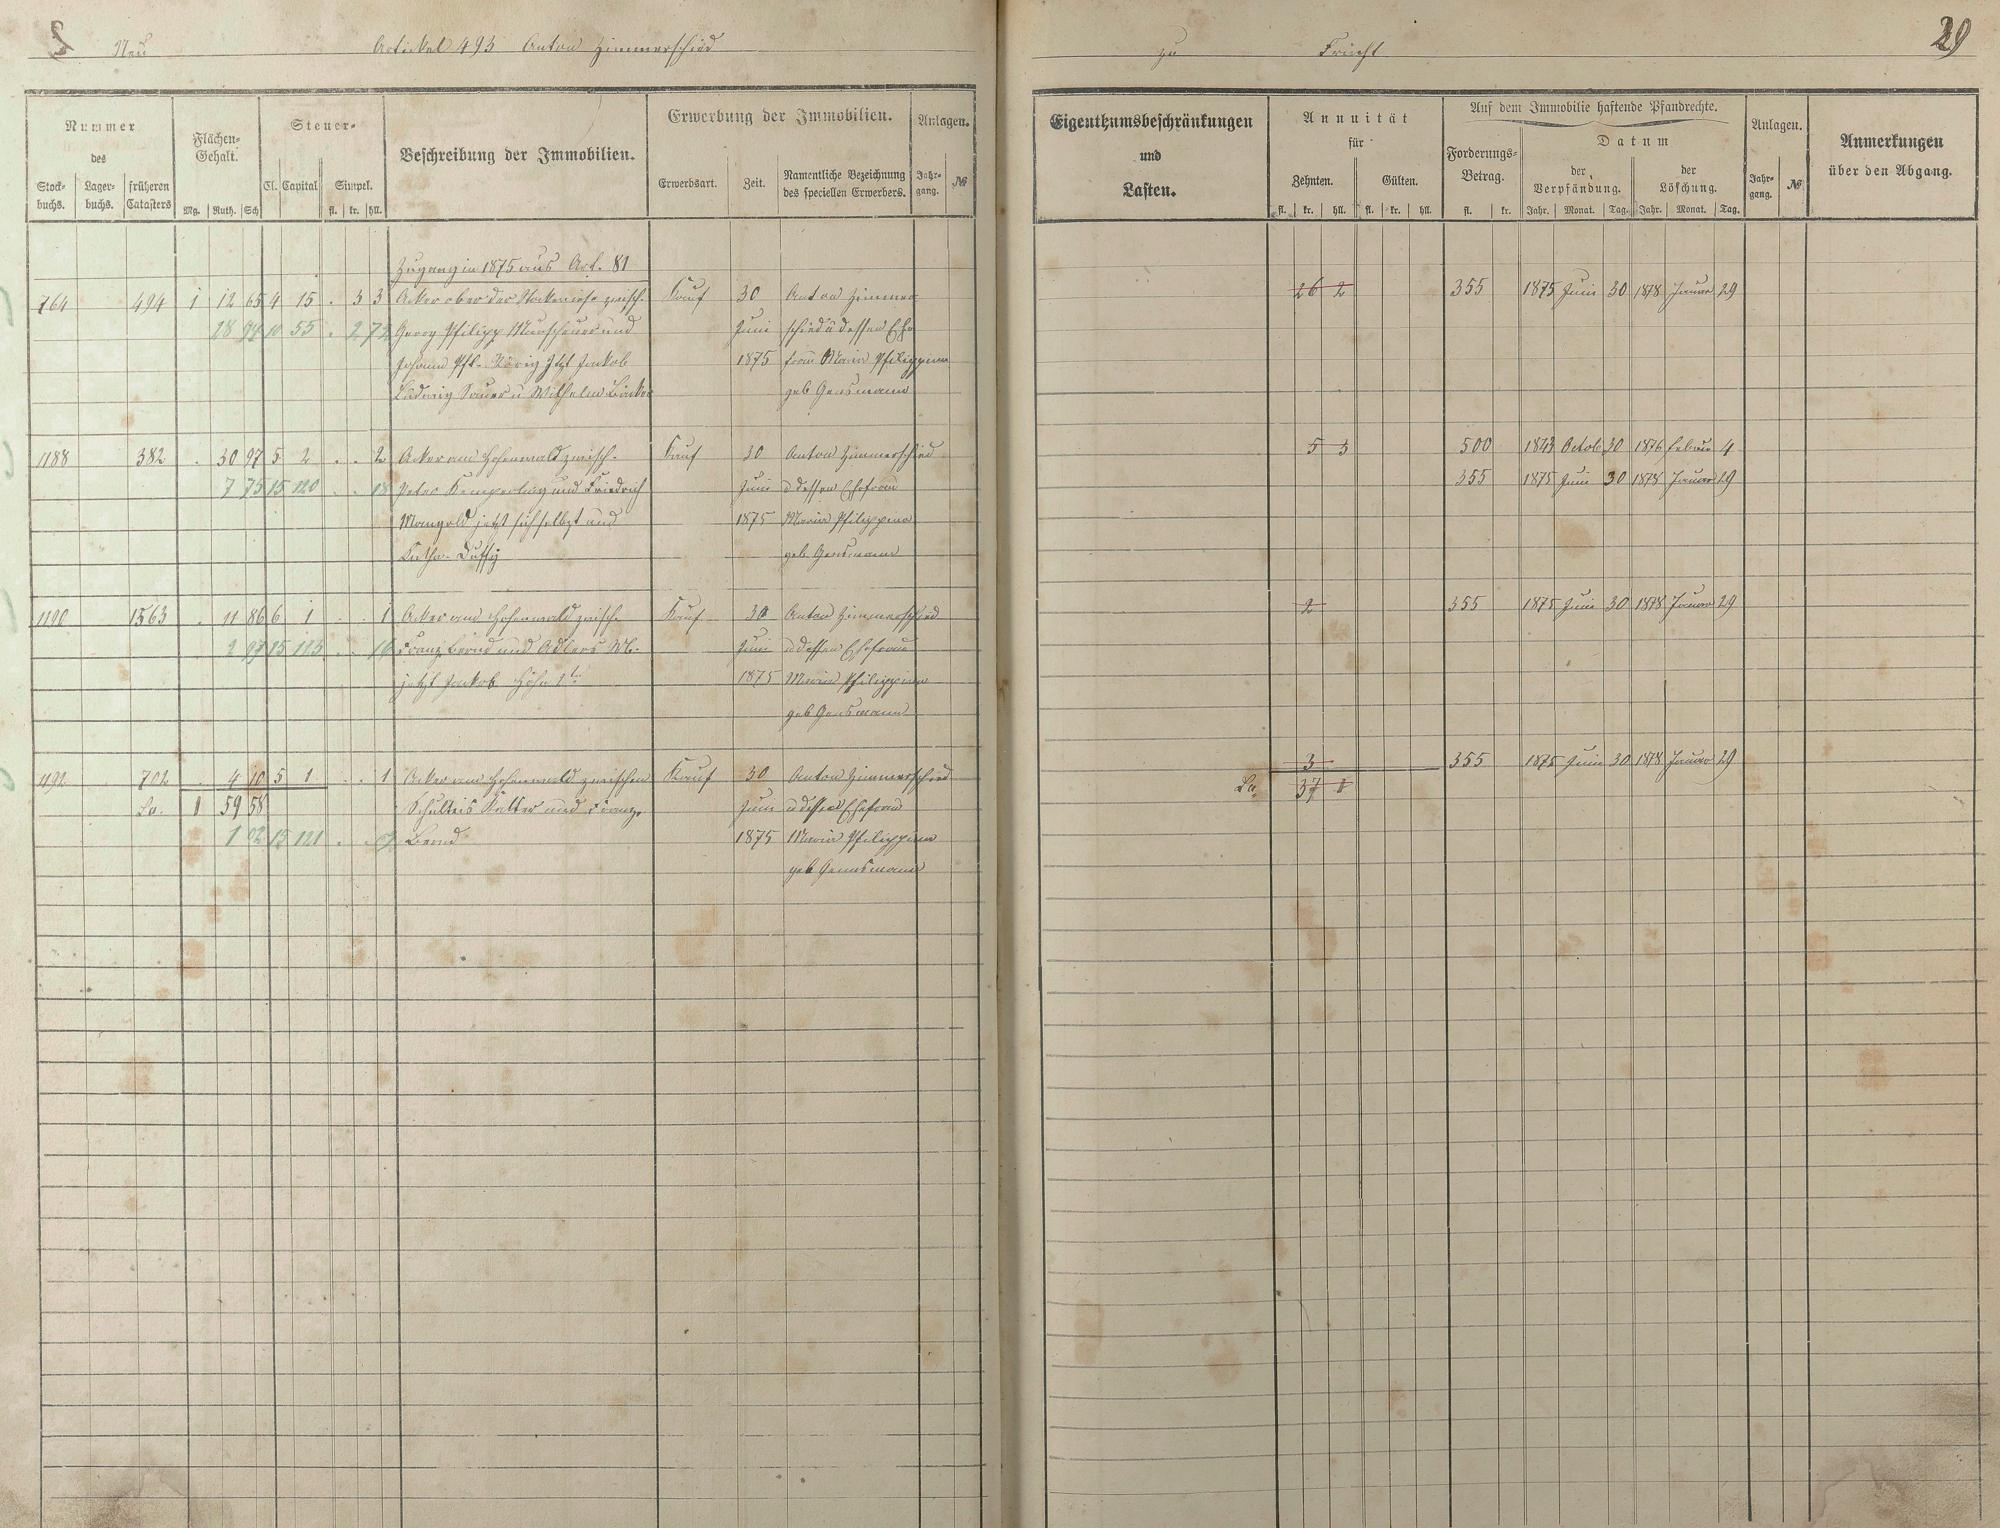 Neu Artikel 493 Anton Zimmerschied
zu Frücht 29
Nummer
des
Stock-
buchs.
Lager-
buchs.
früheren
Catasters
Flächen-
Gehalt.
Mg. Ruth. Sch
Steuer-
Cl. Capital Simpel.
fl. kr. hll.
Beschreibung der Immobilien.
Erwerbung der Immobilien.
Erwerbsart. Zeit.
Namentliche Bezeichnung
des speciellen Erwerbers.
Anlagen.
Jahr-
gang.
№
Eigenthumsbeschränkungen
und
Lasten.
Annuität
für
Zehnten. Gülten.
fl. kr. hll. fl. kr. hll.
Auf dem Immobilie haftende Pfandrechte.
Forderungs-
Betrag.
fl. kr.
Datum
der
Verpfändung.
der
Löschung.
Jahr. Monat. Tag. Jahr. Monat. Tag.
Anlagen.
Jahr-
gang.
№
Anmerkungen
über den Abgang.
Zugang in 1875 aus Art. 81
764 494 1 12 65 4 15 . 3 3 Acker ober der zwisch. Kauf 30 Anton Zimmer 26 2 355 1875 Juni 30 1878 Januar 29
28 94 10 55 . 2 75 Georg Philipp und Juni schied u dessen Ehe
Johann Phl. König jetzt Jakob 1875 frau Maria Philippine
Ludwig Sauer u Wilhelm geb Gensmann
1188 382 . 30 97 5 2 . . 2 Acker am Hohenwald zwisch. Kauf 30 Anton Zimmerschied 5 3 500 1843 Octob 30 1876 Februar 4
7 75 15 120 . . 18 Peter und Friedrich Juni u dessen Ehefrau 355 1875 Juni 30 1878 Januar 29
Mangold jetzt sich selbst und 1875 Maria Philippine
Duffy geb Gensmann
1190 1563 . 11 86 6 1 . . 1 Acker am Hohenwald zwisch. Kauf 30 Anton Zimmerschied 2 355 1875 Juni 30 1878 Januar 29
2 97 15 113 . . 16 Franz Bernd und Adlers Juni u dessen Ehefrau
jetzt Jakob Höhn 1875 Maria Philippine
geb Gensmann
1192 702 . 4 10 5 1 . . 1 Acker am Hohenwald zwischen Kauf 30 Anton Zimmerschied 3 355 1875 Juni 30 1878 Januar 29
La. 1 59 58 Schulteis und Franz Juni u dessen Ehefrau La. 37 1
1 02 15 121 . . Bernd 1875 Maria Philippine
geb Gensmann